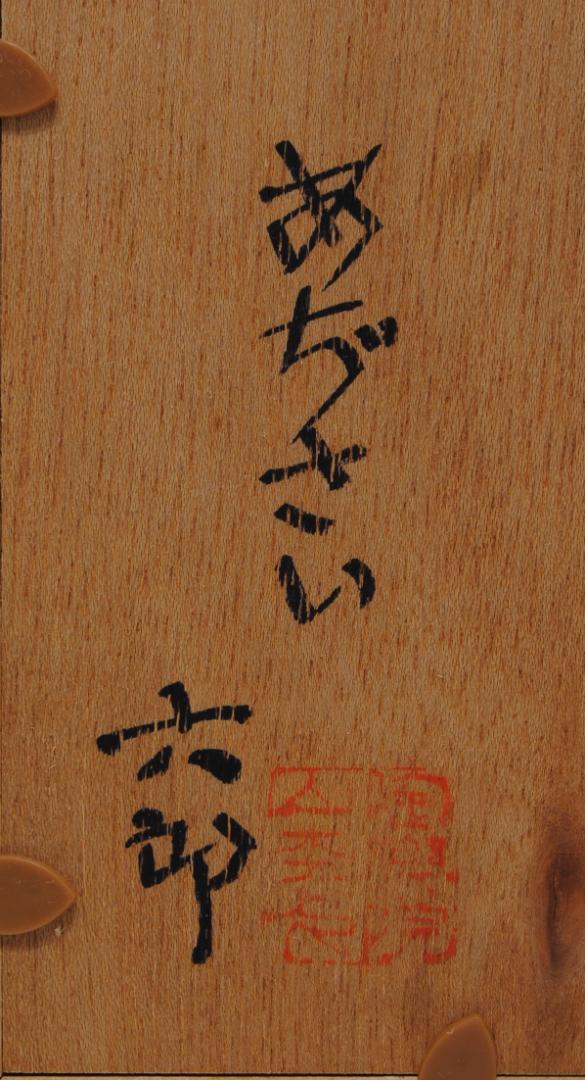 あぢさい
六郎